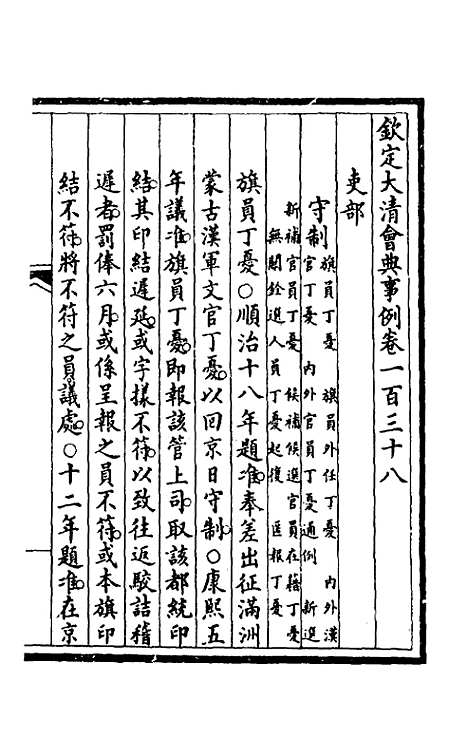 欽定大清會典事例卷一百三十八
吏部
守制旗員丁憂 旗員外任丁憂 內外漢
官丁憂 內外官員丁憂通例 新選
新補官員丁憂 候補候選官員在籍丁憂
無關銓選人員丁憂起復 匿報丁憂
旗員丁憂○順治十八年題准奉差出征滿洲
蒙古漢軍文官丁憂以回京日守制○康熙五
年議准旗員丁憂即報該管上司取該都統印
結其印結遲延或字樣不符以致往返駮詰稽
遲者罰俸六月或係呈報之員不符或本旗印
結不符將不符之員議處○十二年題准在京